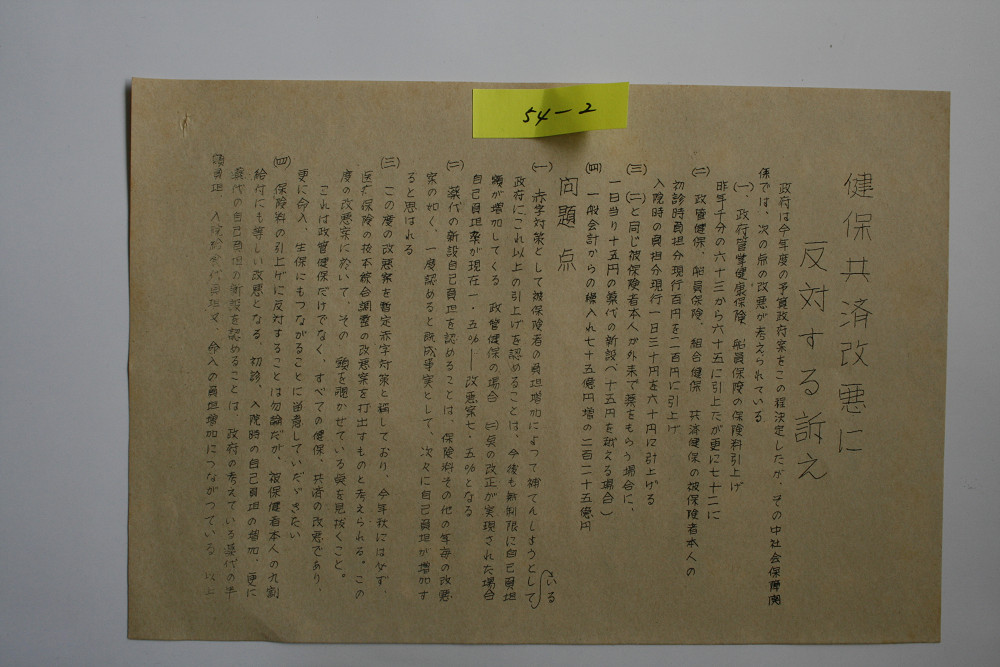 54-2
健保共済改悪に
反対する訴え
政府は今年度の予算政府案をこの程決定したが、その中社会保障関
係では、次の点の改悪が考えられている
(一)、政府管掌健康保険、船員保険の保険料引上げ
昨年千分の六十三から六十五に引上たが更に七十二に
(二) 政管健保、船員保険、組合健保 共済健保の被保険者本人の
初診時負担分現行百円を二百円に引上げ
入院時の負担分現行一日三十円を六十円に引上げる
(三) (二)と同じ被保険者本人が外来で薬をもらう場合に、
一日当り十五円の薬代の新設(十五円を越える場合)
(四) 一般会計からの繰入れ七十五億円増の二百二十五億円
問題点
(一) 赤字対策として被保険者の負担増加によって補てんしようとして
いる
政府にこれ以上の引上げを認めることは、今後も無制限に自己負担
額が増加してくる 政管健保の場合 (二)項の改正が実現された場合
自己負担率が現在一・五%――改悪案七・五%となる
(二) 薬代の新設自己負担を認めることは、保険料その他の年毎の改悪
案の如く、一度認めると既成事実として、次々に自己負担が増加す
ると思はれる
(三) この度の改悪案を暫定赤字対策と称しており、今年秋には必ず、
医療保険の抜本綜合調整の改悪案を打出すものと考えられる。この
度の改悪案において、その 頭を覗かせている点を見抜くこと。
これは政管健保だけでなく、すべての健保、共済の改悪であり、
更に命入、生保にもつながることに留意していだゞきたい
(四) 保険料の引上げに反対することは勿論だが、被保険者本人の九割
給付にも等しい改悪となる、初診、入院時の自己負担の増加、更に
薬代の自己負担の新設を認めることは、政府の考えている薬代の半
額負担 入院給食代負担又、命入の負担増加につながつている 以上